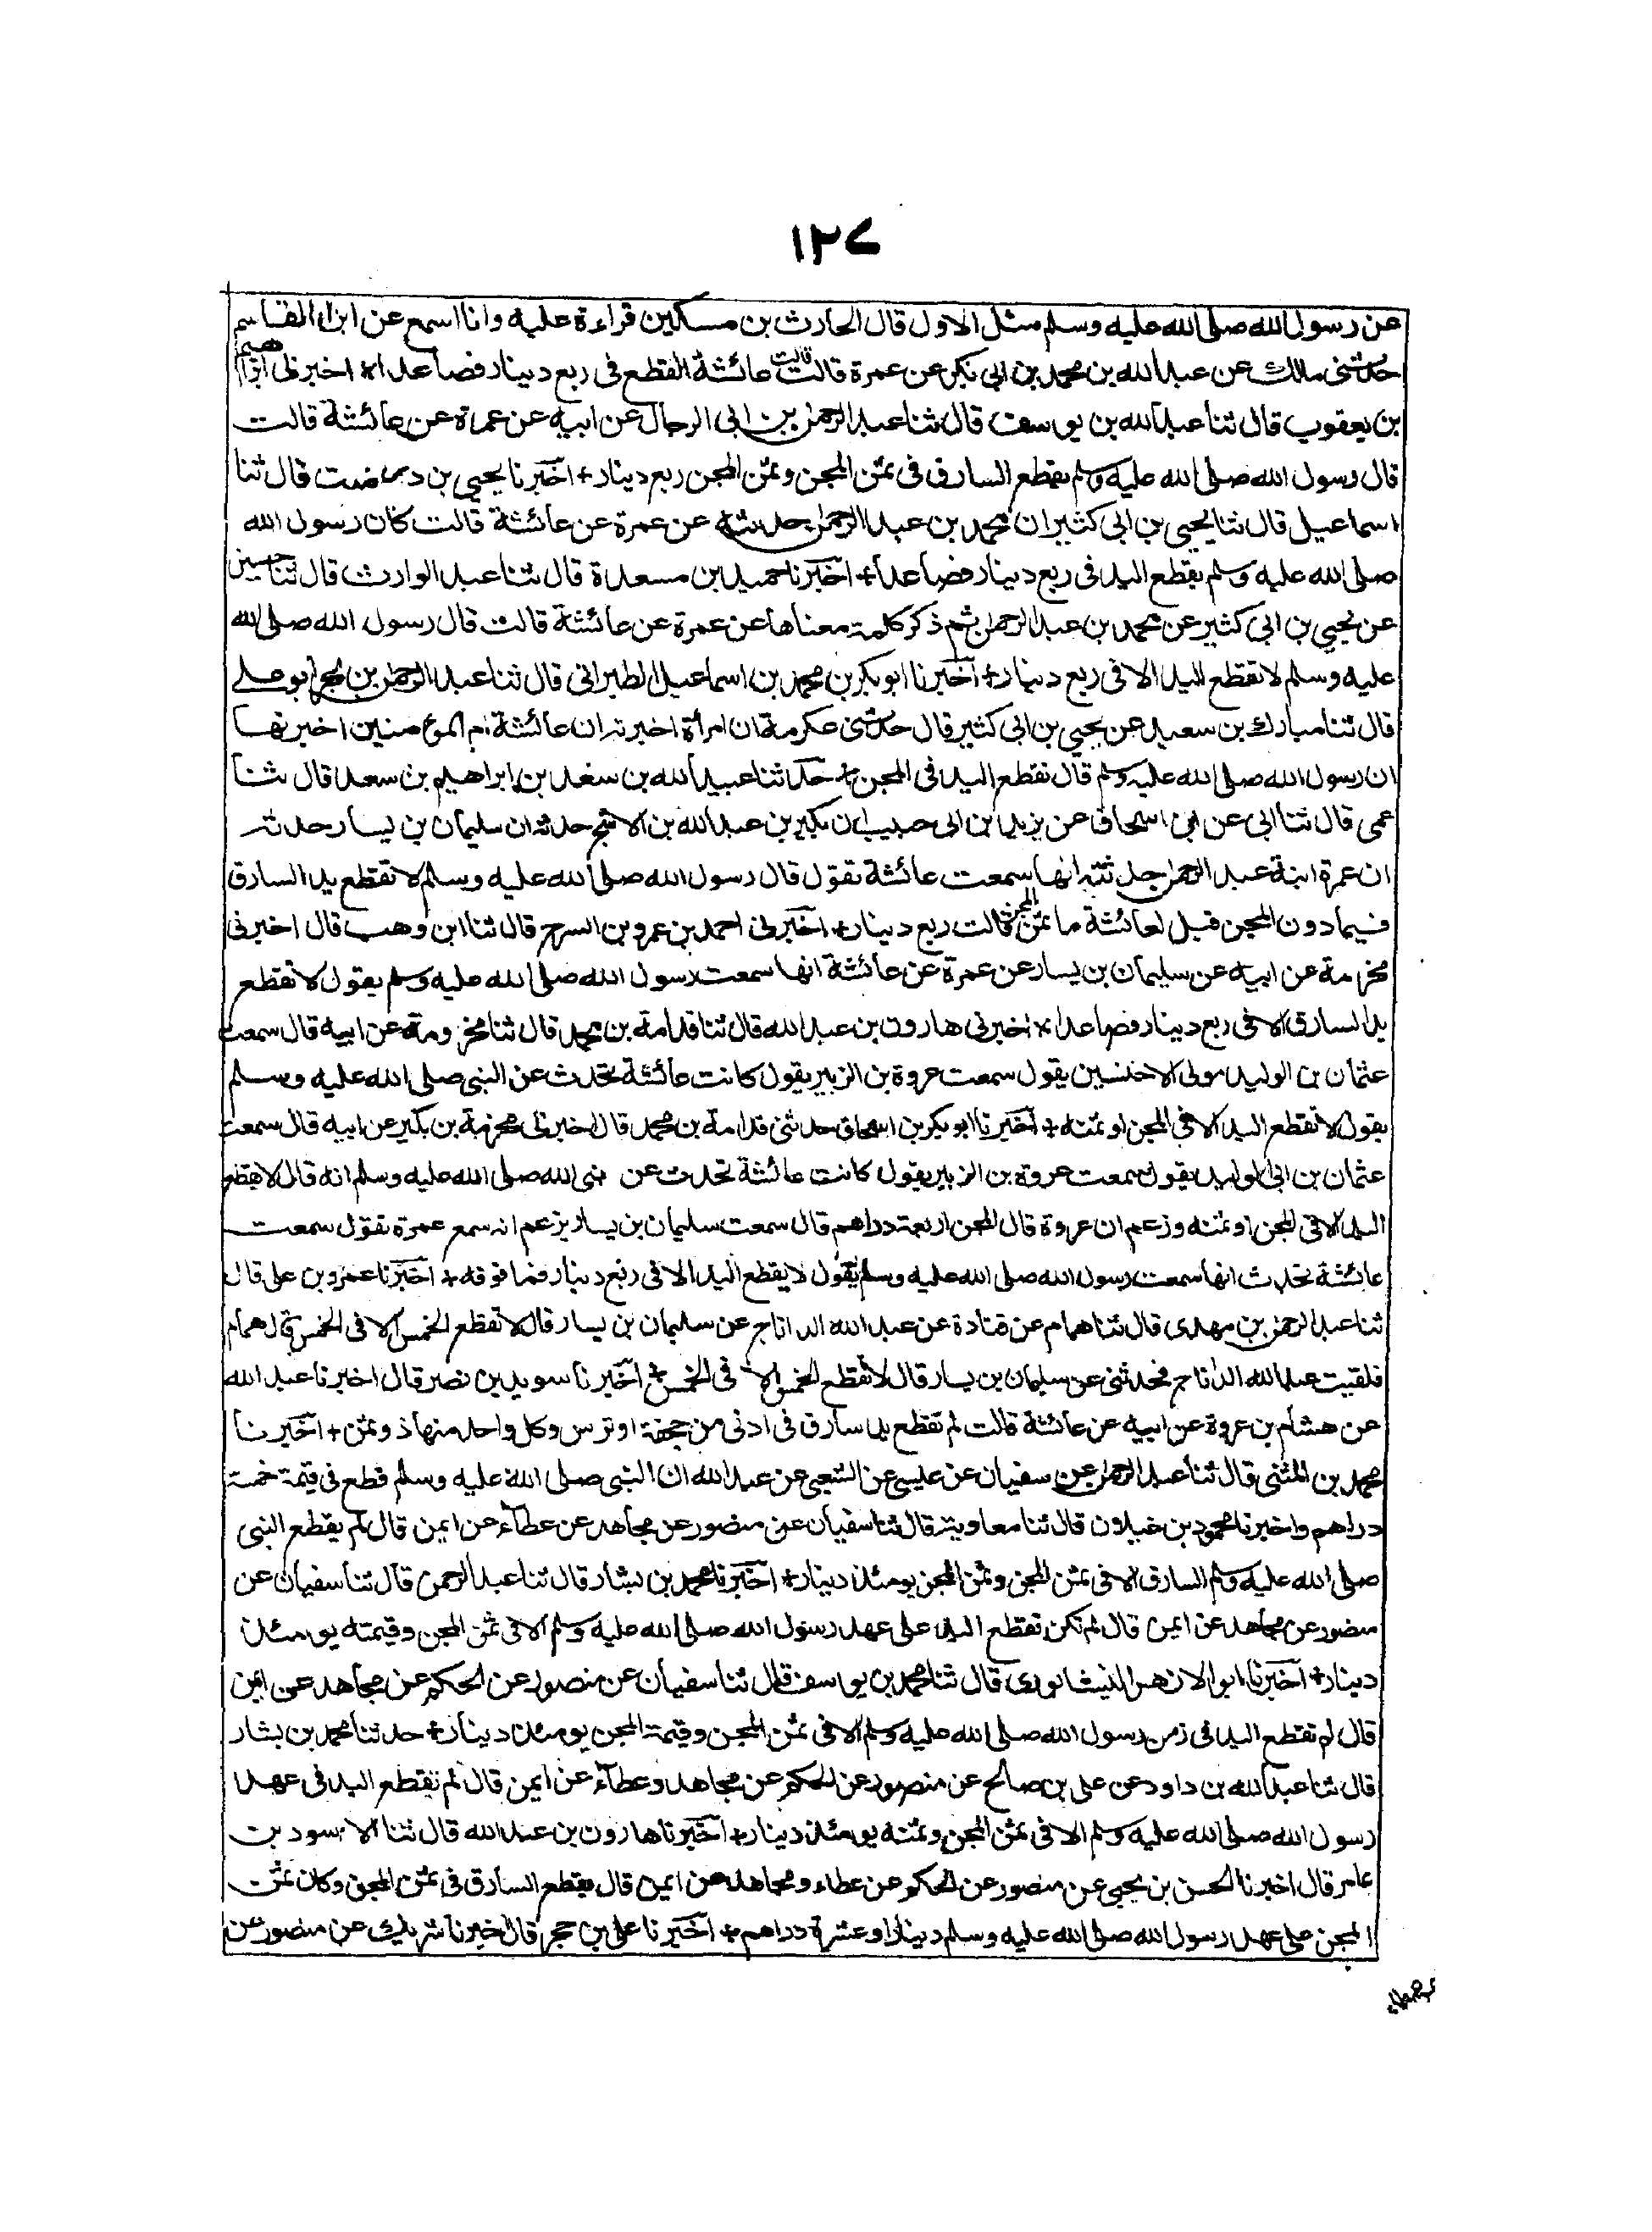 ١٢٧
عن رسول الله صلى الله عليه وسلم مثل الاول قال الحارث بن مسكين قراءة عليه وانا اسمع عن ابن القاسم
حدثنى مالك عن عبد الله بن محمد بن ابى بكر عن عمرة قالت قالت عائشة القطع فى ربع دينار فصاعدا * اخبرنى ابراهيم
بن يعقوب قال ثنا عبد الله بن يوسف قال ثنا عبد الرحمن بن ابى الرجال عن ابيه عن عمرة عن عائشة قالت
قال رسول الله صلى الله عليه وسلم يقطع السارق فى ثمن المجن وثمن المجن ربع دينار + اخبرنا يحيى بن درست قال ثنا
اسماعيل قال ثنا يحيى بن ابى كثير ان محمد بن عبد الرحمن حدثه عن عمرة عن عائشة قالت كان رسول الله
صلى الله عليه وسلم يقطع اليد فى ربع دينار فصاعدا + اخبرنا حميد بن مسعدة قال ثنا عبد الوارث قال ثنا حسين
عن يحيى بن ابى كثير عن محمد بن عبد الرحمن ثم ذكر كلمة معناها عن عمرة عن عائشة قالت قال رسول الله صلى الله
عليه وسلم لا تقطع اليد الا فى ربع دينار + اخبرنا ابو بكر بن محمد بن اسماعيل الطبرانى قال ثنا عبد الرحمن بن بحر ابو على
قال ثنا مبارك بن سعيد عن يحيى بن ابى كثير قال حدثنى عكرمة ان امرأة اخبرته ان عائشة ام المومنين اخبرتها
ان رسول الله صلى الله عليه وسلم قال تقطع اليد فى المجن + حدثنا عبيد الله بن سعد بن ابراهيم بن سعد قال ثنا
عمى قال ثنا ابى عن ابن اسحاق عن يزيد بن ابى حبيب ان بكير بن عبد الله بن الاشج حدثه ان سليمان بن يسار حدثه
ان عمرة ابنة عبد الرحمن حدثته انها سمعت عائشة تقول قال رسول الله صلى الله عليه وسلم لا تقطع يد السارق
فيما دون المجن قيل لعائشة ما ثمن المجن قالت ربع دينار + اخبرنى احمد بن عمرو بن السرح قال ثنا ابن وهب قال اخبرنى
مخرمة عن ابيه عن سليمان بن يسار عن عمرة عن عائشة انها سمعت رسول الله صلى الله عليه وسلم يقول لا تقطع
يد السارق الا فى ربع دينار فصاعدا * اخبرنى هارون بن عبد الله قال ثنا قدامة بن محمد قال ثنا مخرومة عن ابيه قال سمعت
عثمان بن الوليد مولى الاخنسين يقول سمعت عروة بن الزبير يقول كانت عائشة تحدث عن النبى صلى الله عليه وسلم
يقول لا تقطع اليد الا فى المجن او ثمنه + اخبرنا ابو بكر بن اسحاق حدثنى قدامة بن محمد قال اخبرنى مخرمة بن بكير عن ابيه قال سمعت
عثمان بن ابى الوليد يقول سمعت عروة بن الزبير يقول كانت عائشة تحدث عن نبى الله صلى الله عليه وسلم انه قال لا يقطع
اليد الا فى المجن او ثمنه وزعم ان عروة قال المجن اربعة دراهم قال سمعت سليمان بن يسار يزعم انه سمع عمرة تقول سمعت
عائشة تحدث انها سمعت رسول الله صلى الله عليه وسلم يقول لا يقطع اليد الا فى ربع دينار فما فوقه + اخبرنا عمرو بن على قال
ثنا عبد الرحمن بن مهدى قال ثنا همام عن قتادة عن عبد الله الداناج عن سليمان بن يسار قال لا تقطع الخمس الا فى الخمس قال همام
فلقيت عبد الله الداناج فحدثنى عن سليمان بن يسار قال لا تقطع الخمس الا فى الخمس + اخبرنا سويد بن نصر قال اخبرنا عبد الله
عن هشام بن عروة عن ابيه عن عائشة قالت لم تقطع يد سارق فى ادنى من حجفة او ترس وكل واحد منها ذو ثمن + اخبرنا
محمد بن المثنى قال ثنا عبد الرحمن عن سفيان عن عليسى عن الشعبى عن عبد الله ان النبى صلى الله عليه وسلم قطع فى قيمة خمسة
دراهم واخبرنا محمود بن غيلان قال ثنا معاوية قال ثنا سفيان عن منصور عن مجاهد عن عطاء عن ايمن قال لم يقطع النبى
صلى الله عليه وسلم السارق الا فى ثمن المجن وثمن المجن يومئذ دينار + اخبرنا محمد بن بشار قال ثنا عبد الرحمن قال ثنا سفيان عن
منصور عن مجاهد عن ايمن قال لم تكن تقطع اليد على عهد رسول الله صلى الله عليه وسلم الا فى ثمن المجن وقيمته يومئذ
دينار + اخبرنا ابو الازهر النيشابورى قال ثنا محمد بن يوسف قال ثنا سفيان عن منصور عن الحكم عن مجاهد عن ايمن
قال لم تقطع اليد فى زمن رسول الله صلى الله عليه وسلم الا فى ثمن المجن وقيمة المجن يومئذ دينار + حدثنا محمد بن بشار
قال ثنا عبد الله بن داود عن على بن صالح عن منصور عن الحكم عن مجاهد وعطاء عن ايمن قال لم تقطع اليد فى عهد
رسول الله صلى الله عليه وسلم الا فى ثمن المجن وثمنه يومئذ دينار + اخبرنا هارون بن عبد الله قال ثنا الاسود بن
عامر قال اخبرنا الحسن بن يحيى عن منصور عن الحكم عن عطاء ومجاهد عن ايمن قال يقطع السارق فى ثمن المجن وكان ثمن
المجن على عهد رسول الله صلى الله عليه وسلم دينارا وعشرة دراهم + اخبرنا على بن حجر قال اخبرنا شريك عن منصور عن